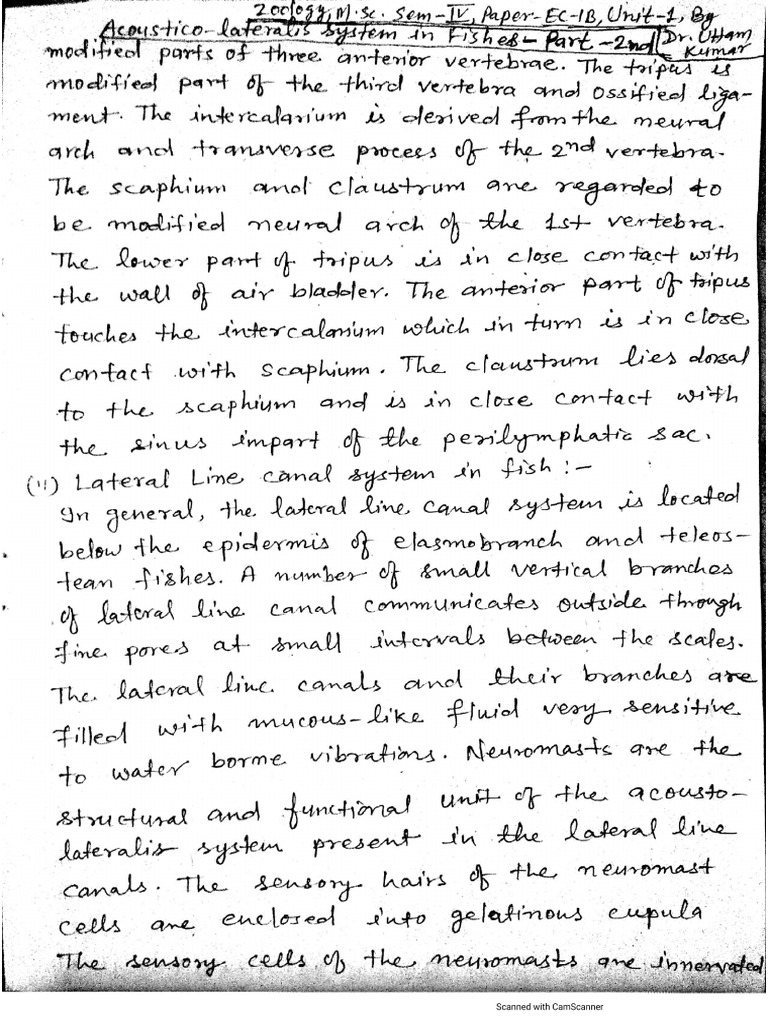 Zoology, M.Sc. Sem-IV, Paper-EC-1B, Unit-1, By
Acoustico-lateralis system in Fishes- Part-2nd Dr. Uttam
Kumar
modified parts of three anterior vertebrae. The tripus is
modified part of the third vertebra and ossified liga-
ment. The intercalarium is derived from the neural
arch and transverse process of the 2nd vertebra.
The scaphium and claustrum are regarded to
be modified neural arch of the 1st vertebra.
The lower part of tripus is in close contact with
the wall of air bladder. The anterior part of tripus
touches the intercalarium which in turn is in close
contact with scaphium. The claustrum lies dorsal
to the scaphium and is in close contact with
the sinus impart of the perilymphatic sac.
(ii) Lateral Line canal system in fish :-
In general, the lateral line canal system is located
below the epidermis of elasmobranch and teleos-
tean fishes. A number of small vertical branches
of lateral line canal communicates outside through
fine pores at small intervals between the scales.
The lateral line canals and their branches are
filled with mucous-like fluid very sensitive
to water borne vibrations. Neuromasts are the
structural and functional unit of the acousto-
lateralis system present in the lateral line
canals. The sensory hairs of the neuromast
cells are enclosed into gelatinous cupula
The sensory cells of the neuromasts are innervated
Scanned with CamScanner